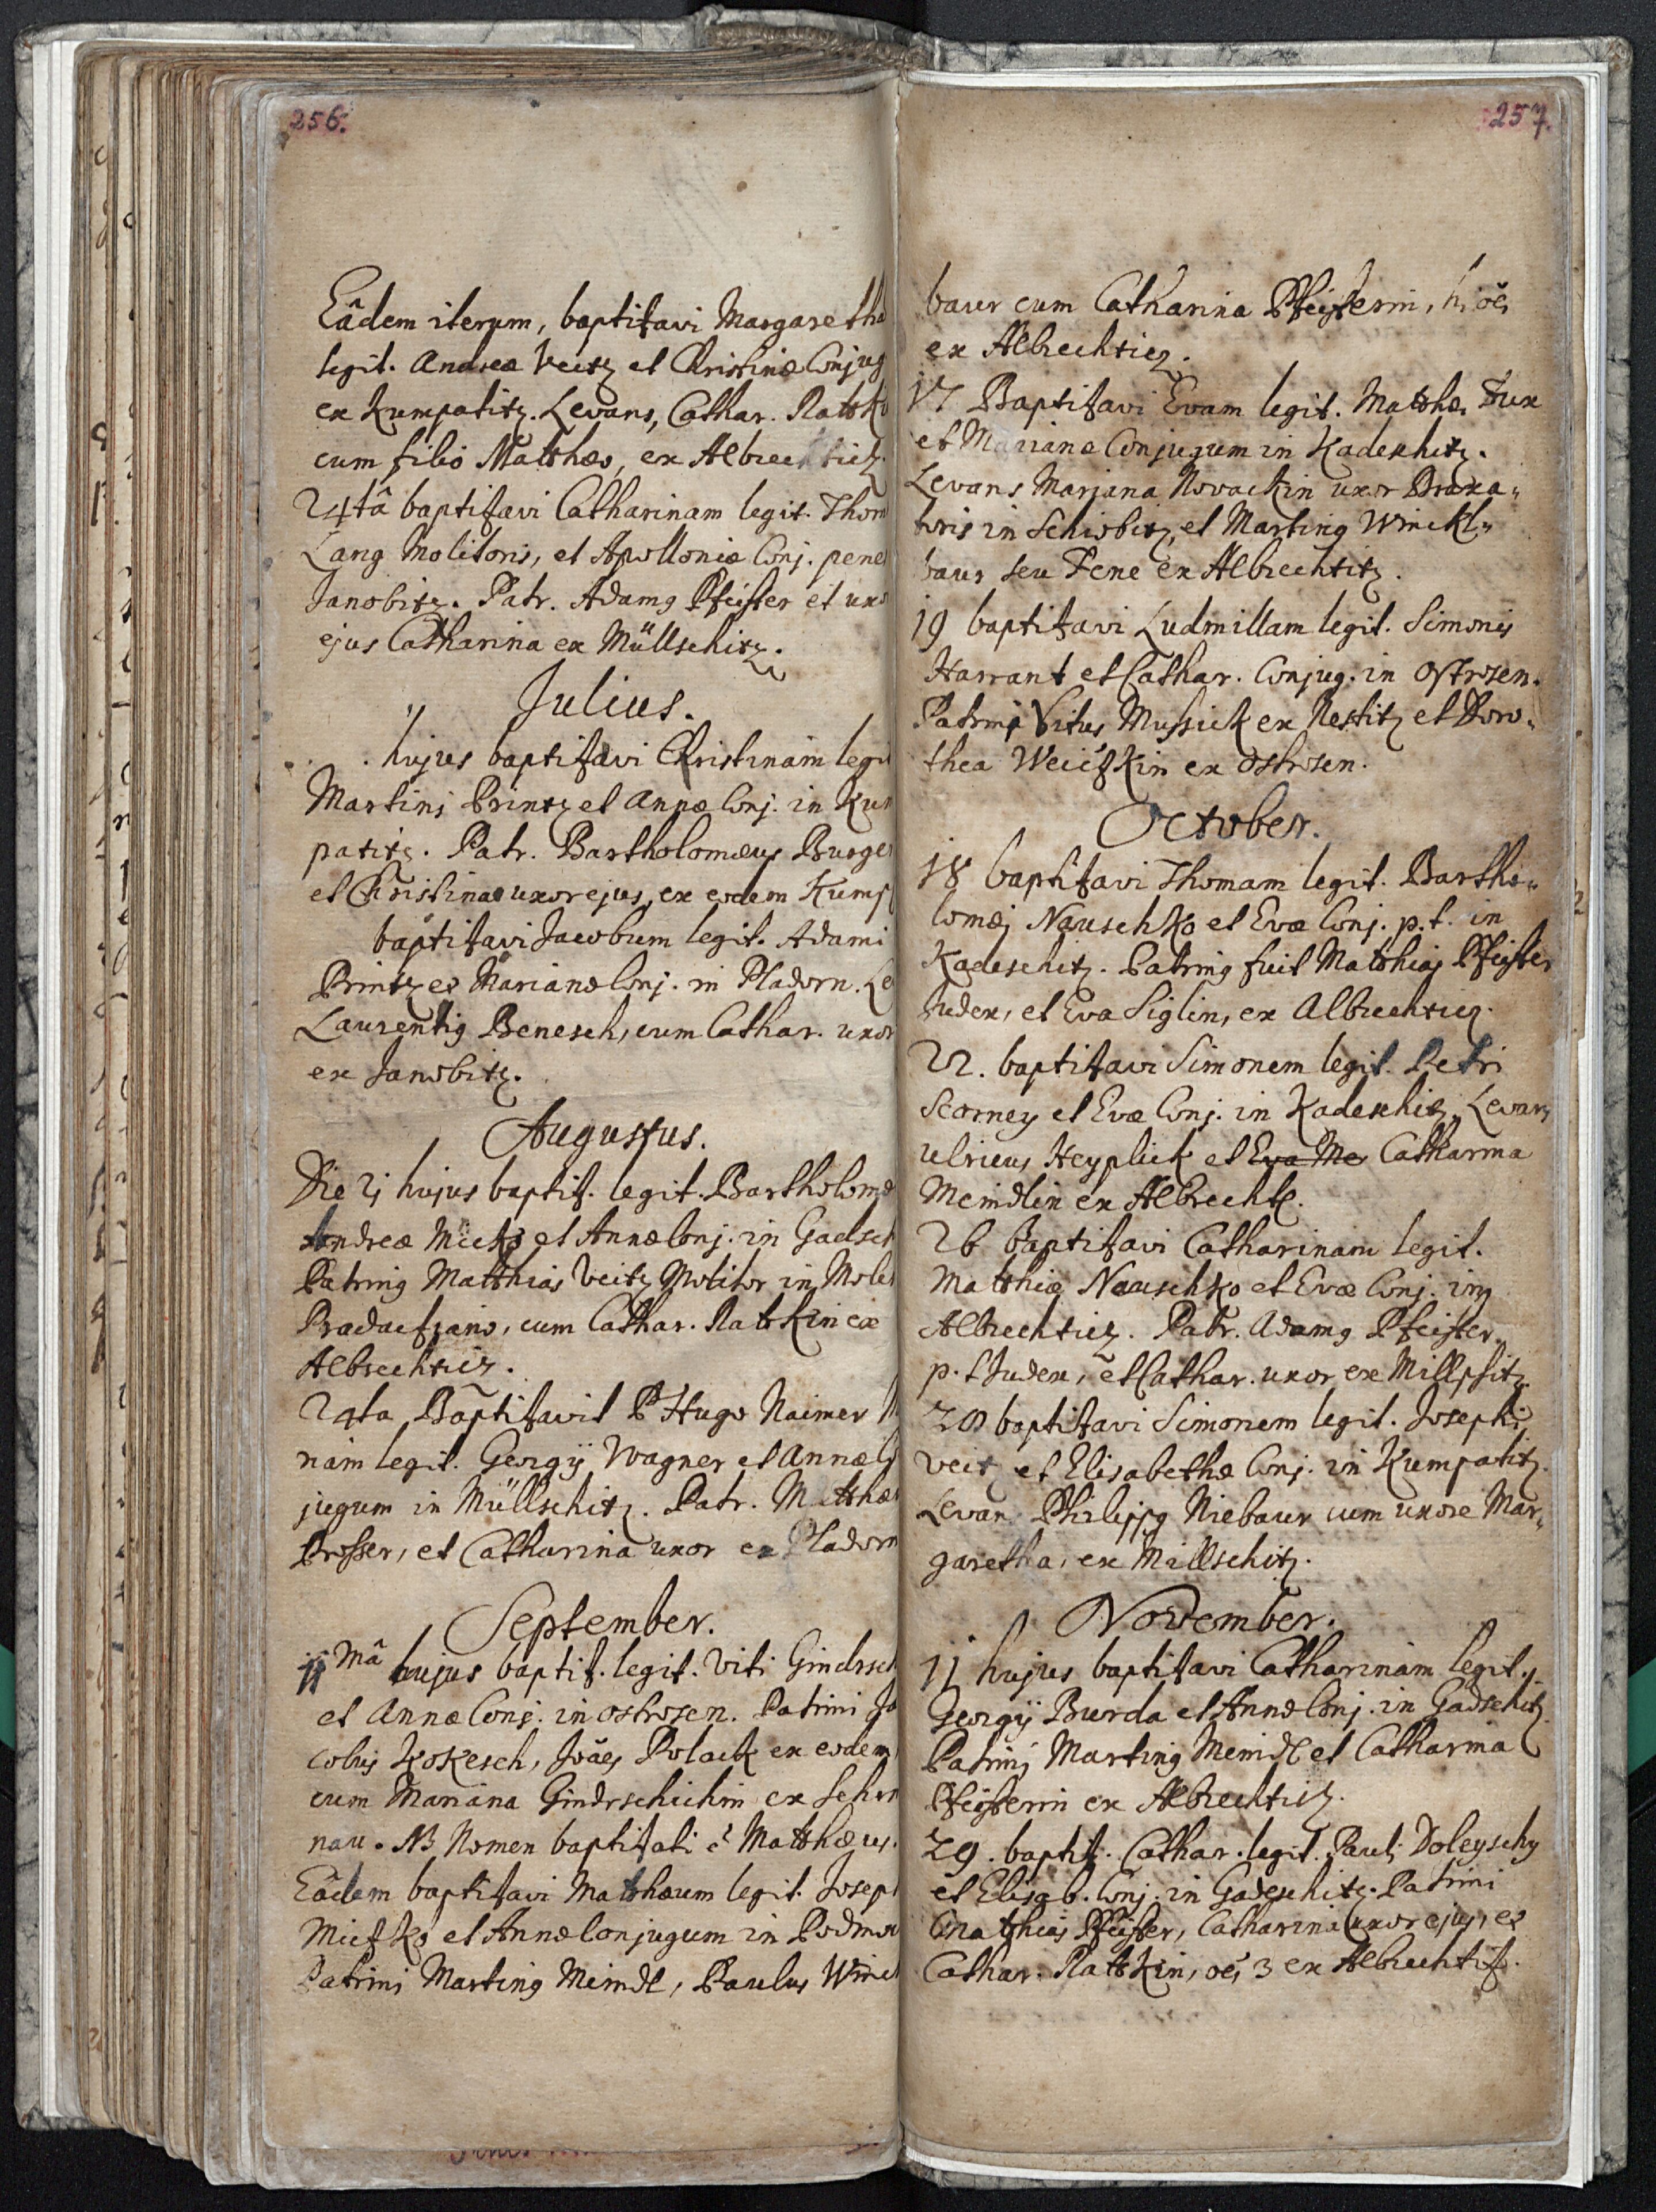 256.
Eâdem iterum, baptisavi Margaretha
legit. Andreæ Veitz et Christinæ Conjug
ex Kumpatitz. Levans, Cathar. Ratsk
cum filio Matthæo, ex Albrechtietz.
24tâ baptisavi Catharinam legit. Thom
Lang Molitoris, et Apolloniæ Conj. pene
Janobitz. Patr. Adamg Pfeister et uxo
ejus Catharina ex Müllschitz.
Julius.
hujus baptisavi Christinam legi
Martini Printz et Annæ Conj. in Kum
patitz. Patr. Bartholomæus Burge
et Christina uxor ejus, ex eodem Kump
baptisavi Jacobum legit. Adami
Printz et Marianæ Conj. in Pladorn. Le
Laurentig Benesch, cum Cathar. uxor
ex Janobitz.
Augustus.
Die 2j hujus baptis. legit. Bartholomæ
Andreæ Micko et Annæ Conj. in Gadsch
Patring Matthias Veitz Molitor in Mole
Pradaczano, cum Cathar. Ratskin ex
Albrechtiez.
24ta Baptisavit P Hugo Naimer
nam legit. Georgij Wagner et Annæ C
jugum in Müllschitz. Patr. Matthæ
Prosser, et Catharina uxor ex Pladorn
September.
jj mâ hujus baptis. legit. Viti Gindrsch
et Annæ Conj. in Ostrozen. Patrini Ja
cobus Kokesch, Joães Polack ex eodem
cum Mariana Gindrschichin ex Schu
nau. NB Nomen baptisati ẽ Matthæus.
Eâdem baptisavi Matthæum legit. Joseph
Micsko et Annæ Conjugum in Podmok
Patrini Marting Meindl, Paulus Winck
257.
baur cum Catharina Pfeisterin, hi oẽs
ex Albrechtiez.
17 Baptisavi Evam legit. Matthæ Fux
et Marianæ Conjugum in Kadeshitz.
Levans Marjana Novackin uxor Braxa„
toris in Schiobitz, et Marting Winckl„
baur seu Fene ex Albrechtitz.
19 baptisavi Ludmillam legit. Simonis
Harrant et Cathar. Conjug. in Ostrozen.
Patrinj Vitus Mussick ex Nestitz et Doro„
thea Weiczkin ex Ostrozen.
October.
18 baptisavi Thomam legit. Bartho„
lomæj Nauschko et Evæ Conj. p.t. in
Kadeschitz. Patring fuit Matthias Pfeister
Judex, et Eva Siglin, ex Albrechtiez.
22. baptisavi Simonem legit. Petri
Scorney et Evæ Conj. in Kadeshitz. Levan,
Ulricus Heyplick et Eva Me Catharina
Meindlin ex Albrechtz.
26 Baptisavi Catharinam legit.
Matthiæ Nauschko et Evæ Conj. in
Albrechtiez. Patr. Adamg Pfeister„
p.t Judex, et Cathar. uxor ex Millpsitz.
28 baptisavi Simonem legit. Josephi
Veitz et Elisabethæ Conj. in Kumpatitz.
Levan. Philippg Niebaur cum uxore Mar„
garetha, ex Millschitz.
November.
11 hujus baptisavi Catharinam legit.
Georgij Burda et Annæ Conj. in Gadschitz.
Patrinj Marting Meindl et Catharina
Pfeisterin ex Albrechtitz.
29. baptis. Cathar. legit. Pauli Doleyschy
et Elisab. Conj. in Gadeschitz. Patrini
Matthias Pfeister, Catharina uxor ejus, et
Cathar. Ratskin, oẽs 3 ex Albrechtiz.